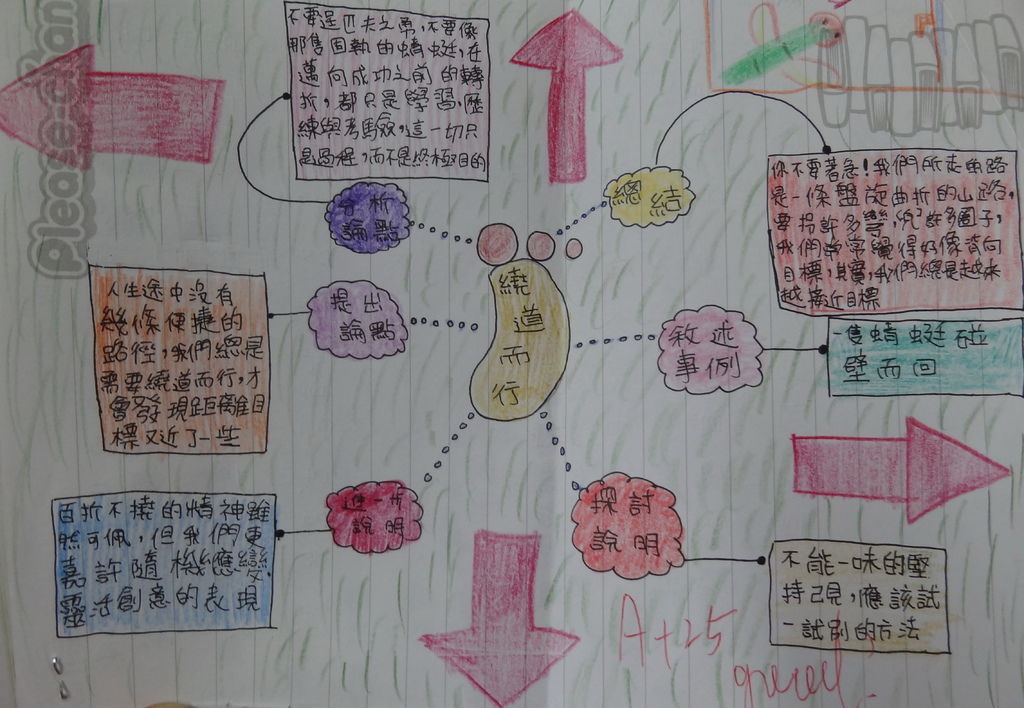 繞
道
而
行
總結
你不要著急！我們所走的路
是一條盤旋曲折的山路，
要拐許多彎，兜許多圈子，
我們常常覺得好像背向
目標，其實，我們總是越來
越接近目標
敘述
事例
一隻蜻蜓碰
壁而回
探討
說明
不能一味的堅
持己見，應該試
一試別的方法
進一步
說明
百折不撓的精神雖
然可佩，但我們更
嘉許隨機應變、
靈活創意的表現
提出
論點
人生途中沒有
幾條便捷的
路徑，我們總是
需要繞道而行，才
會發現距離目
標又近了一些
分析
論點
不要逞匹夫之勇，不要像
那隻固執的蜻蜓，在
邁向成功之前的轉
折，都只是學習、歷
練與考驗，這一切只
是過程，而不是終極目的
A+25